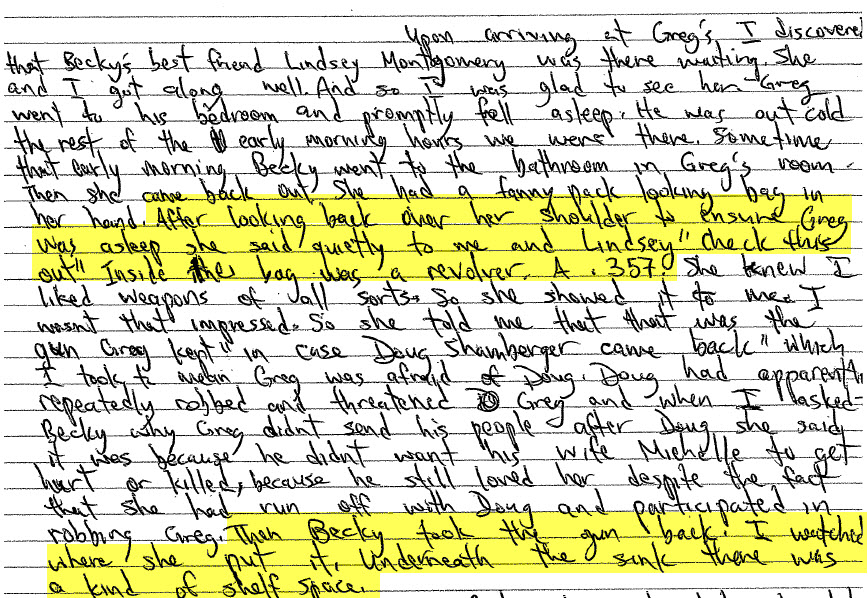 Upon arriving at Greg's, I discovered
that Becky's best friend Lindsey Montgomery was there waiting. She
and I got along well. And so I was glad to see her. Greg
went to his bedroom and promptly fell asleep. He was out cold
the rest of the early morning hours we were there. Sometime
that early morning Becky went to the bathroom in Greg's room.
Then she came back out. She had a fanny pack looking bag in
her hand. After looking back over her shoulder to ensure Greg
was asleep she said quietly to me and Lindsey "check this
out" Inside the bag was a revolver. A .357. She knew I
liked weapons of all sorts. So she showed it to me. I
wasnt that impressed. So she told me that that was the
gun Greg kept "in case Doug Shamberger came back" which
I took to mean Greg was afraid of Doug. Doug had apparently
repeatedly robbed and threatened Greg and when I asked
Becky why Greg didnt send his people after Doug she said
it was because he didnt want his wife Michelle to get
hurt or killed, because he still loved her despite the fact
that she had run off with Doug and participated in
robbing Greg. Then Becky took the gun back. I watched
where she put it. Underneath the sink there was
a kind of shelf space.